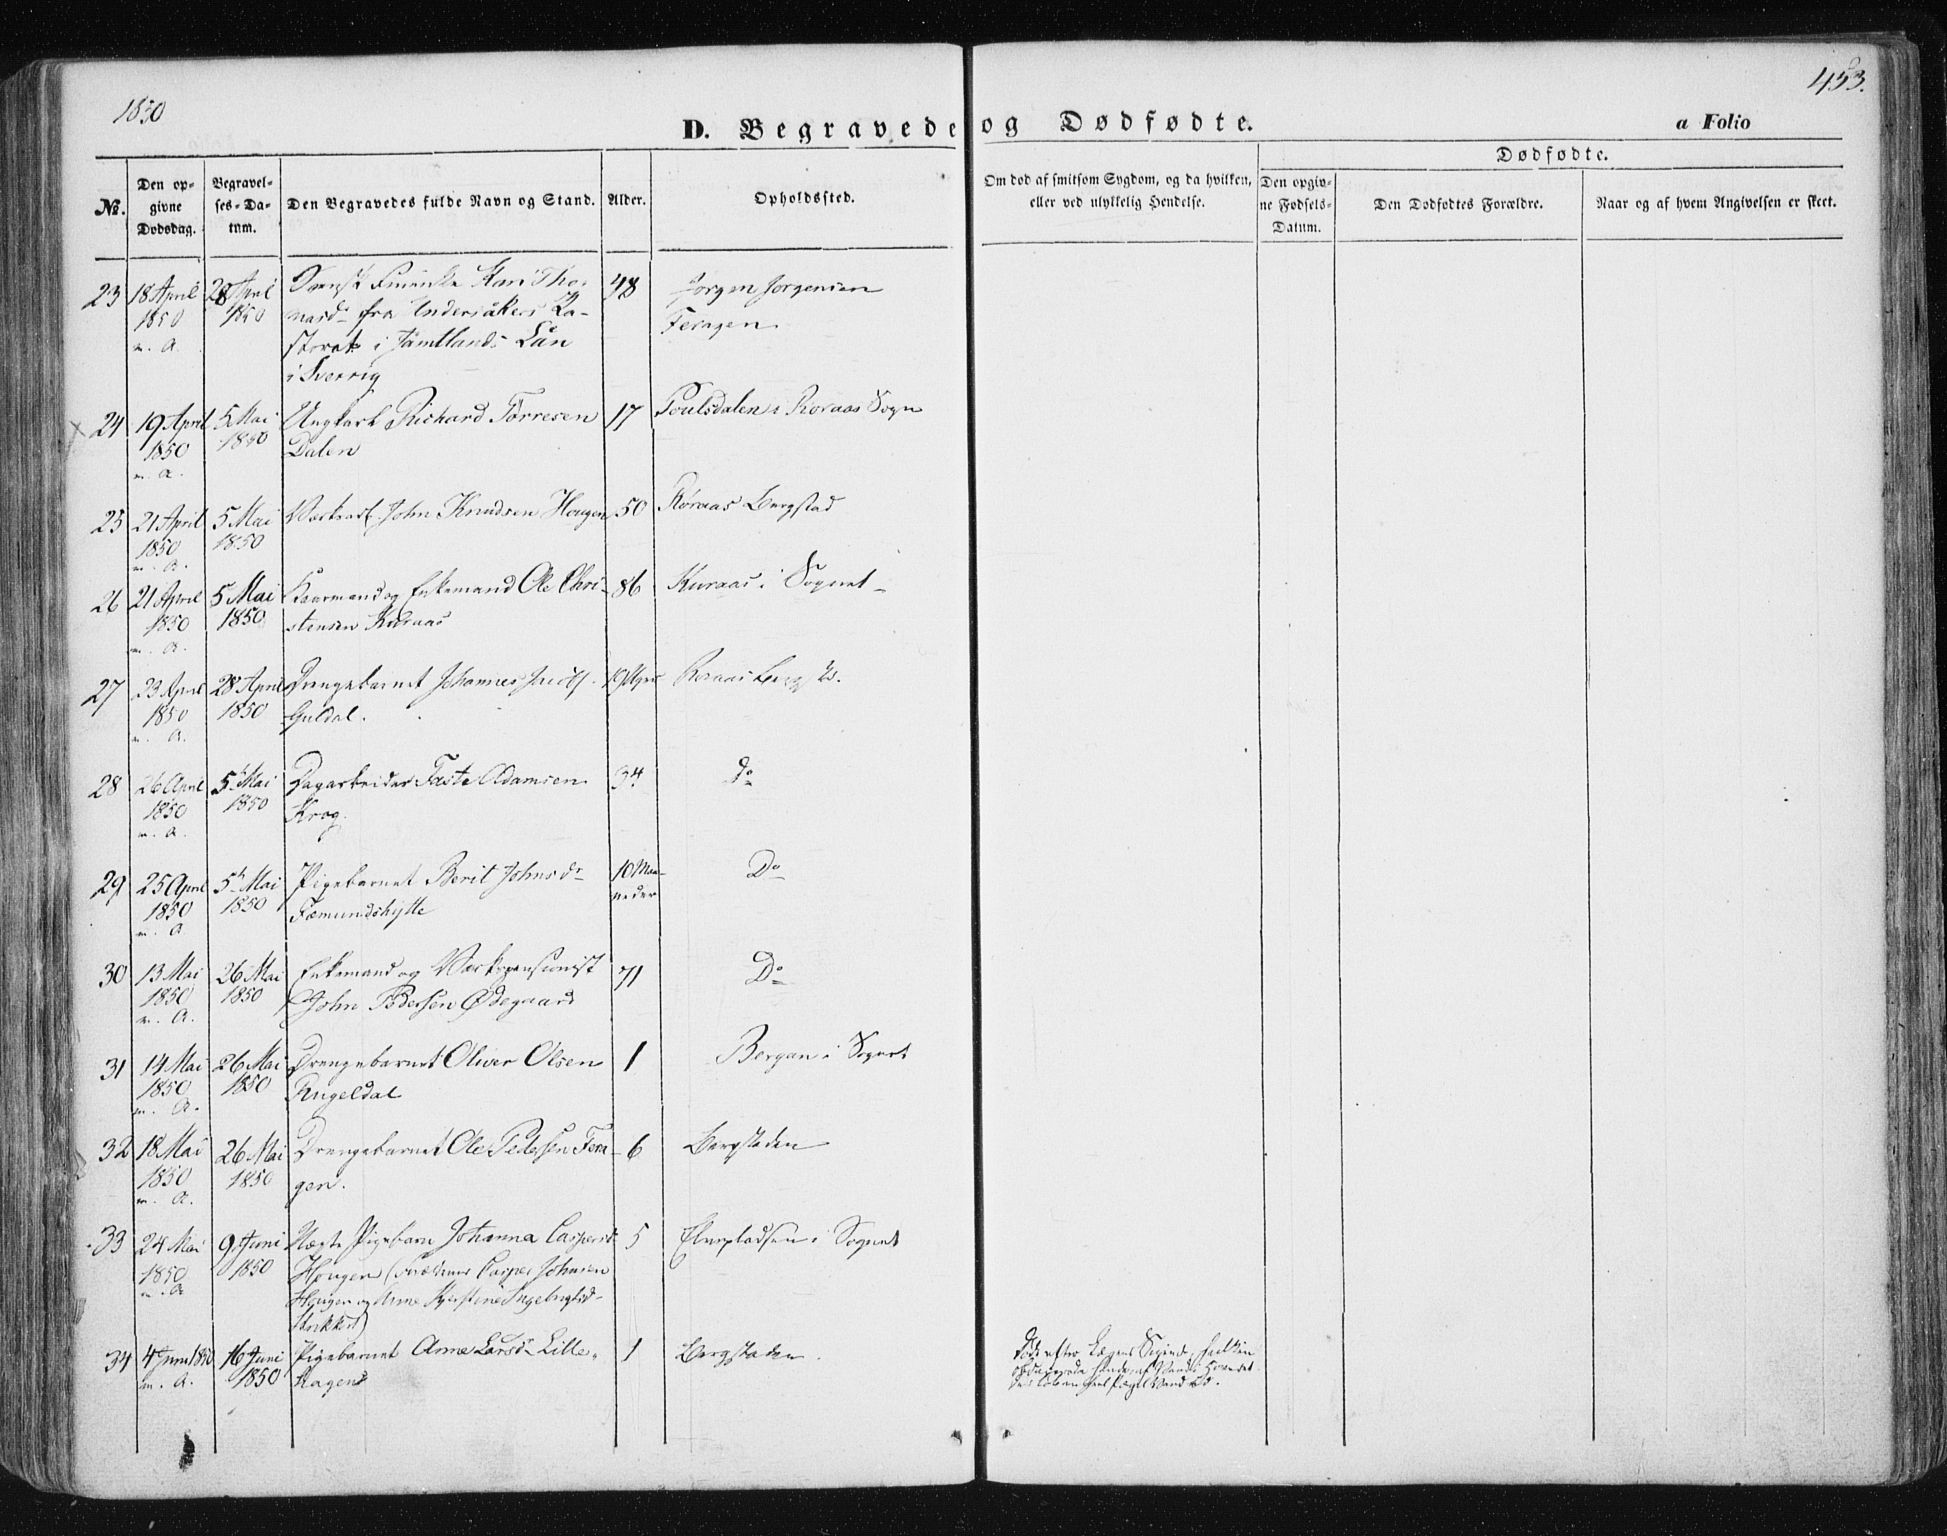 1850
453.
D. Begravede og Dødfødte.
a Folio
No.
Den opgivne Dødsdag.
Begravelses-Datum.
Den Begravedes fulde Navn og Stand.
Alder.
Opholdssted.
Om død af smitsom Sygdom, og da hvilken, eller ved ulykkelig Hendelse.
Dødfødte.
Den opgivne Fødsels-Datum.
Den Dødfødtes Forældre.
Naar og af hvem Angivelsen er skeet.
23 18 April 28 April Svensk Kari Tho- 48 Jørgen Jørgensen
1850 1850 masd. fra Undersåkers Pa- Feragen
m. A. storat i Jämtlands Län
i Sverrig
24 19 April 5 Mai Ungkarl Richard Torresen 17 Poulsdalen i Roraas Sogn
1850 1850 Dalen
m. A.
25 21 April 5 Mai John Knudsen Hougen 50 Røraas Bergstad
1850 1850
m. A.
26 21 April 5 Mai og Enkemand Ole Chri- 86 Kuraas i Sognet
1850 1850 stensen Kuraas
m. A.
27 23 April 28 April Drengebarnet Johannes Roraas
1850 1850 Guldal.
m. A.
28 26 April 5 Mai Dagarbeider Taste Adamsen 34 Do
1850 1850 Krog.
m. A.
29 25 April 5 Mai Pigebarnet Berit Johnsdr 10 Maa- Do
1850 1850 Fæmundshytte neder
m. A.
30 13 Mai 26 Mai Enkemand og Værkspensionist 71 Do
1850 1850 John Pedersen Ødegaard
m. A.
31 14 Mai 26 Mai Drengebarnet Oliver Olsen 1 Bergan i Sognet
1850 1850 Rugeldal
m. A.
32 18 Mai 26 Mai Drengebarnet Ole Pedersen Fera- 6 Bergstaden
1850 1850 gen.
m. A.
33 24 Mai 9 Juni Uægte Pigebarn Johanna Caspersd 5 i Sognet
1850 1850 Hougen (Forældrene Casper Johnsen
m. A. Hougen og Anne Kjerstine Ingebrigtsd.
34 4 Juni 1850 16 Juni Pigebarnet Anne Larsdr Lille- 1 Bergstaden. Død efter Lægens
m. A. 1850 hagen